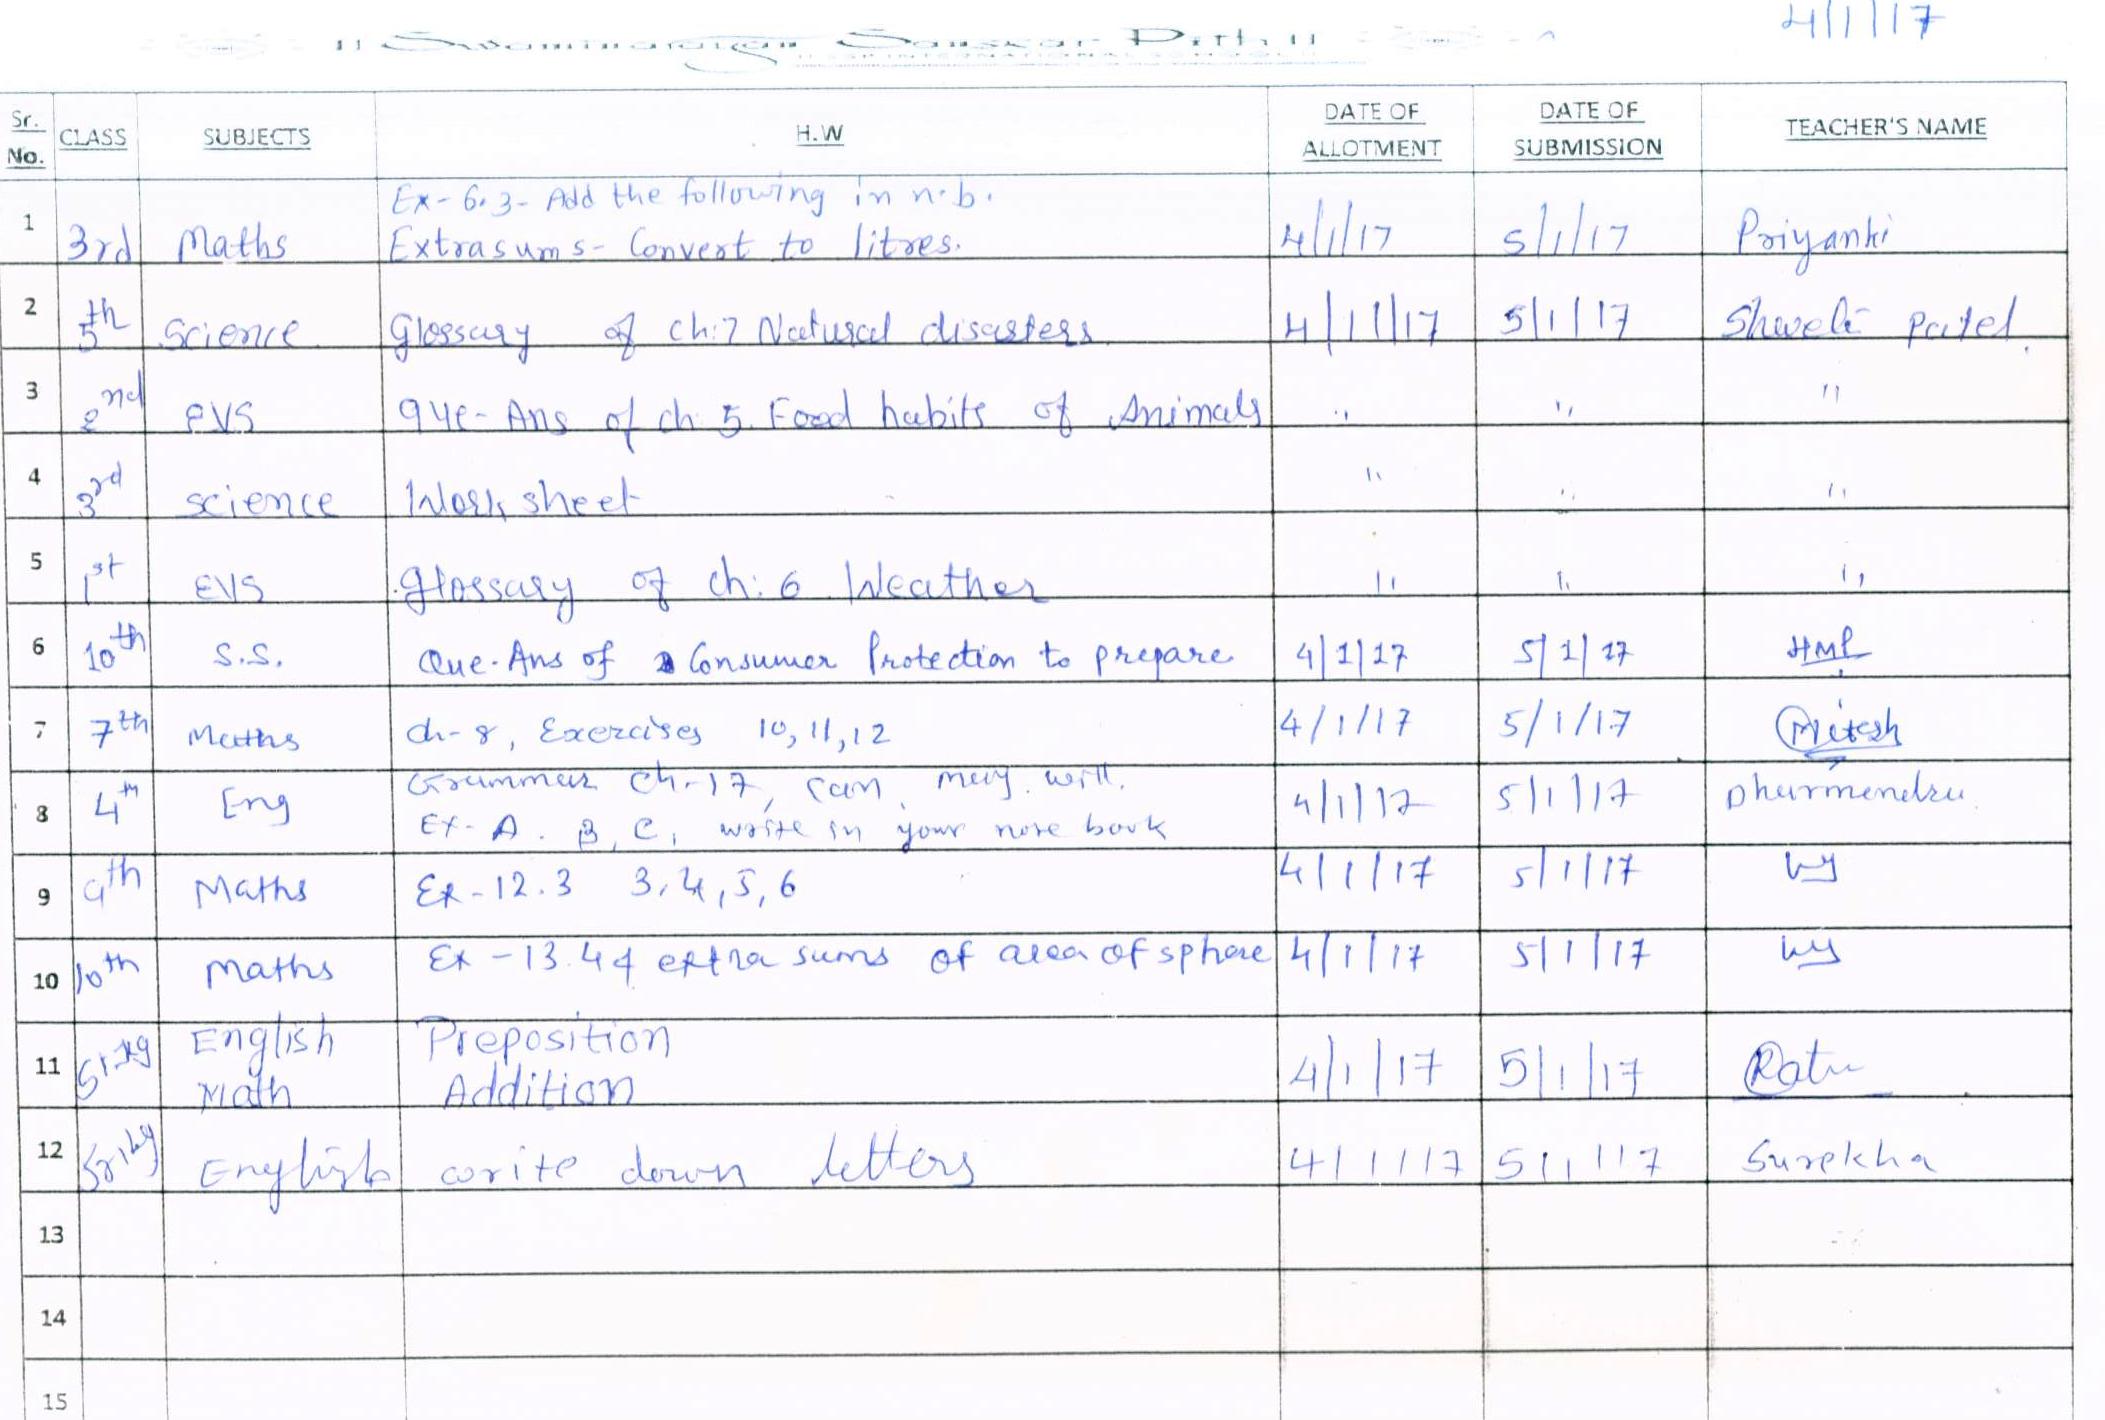 4/1/17
|| Swaminarayan Sanskar Pith ||
Sr. No. CLASS SUBJECTS H.W DATE OF ALLOTMENT DATE OF SUBMISSION TEACHER'S NAME
1 3rd Maths Ex-6.3- Add the following in n.b.
Extrasums- Convert to litres. 4/1/17 5/1/17 Priyanki
2 5th Science Glossary of ch:7 Natural disasters 4/1/17 5/1/17 Shweli Patel.
3 2nd EVS que-Ans of ch 5. Food habits of Animals " " "
4 3rd science Work sheet " " "
5 1st EVS glossary of ch:6 Weather " " "
6 10th S.S. Que-Ans of Consumer Protection to prepare 4/1/17 5/1/17 HMP
7 7th Maths ch-8, Exercises 10,11,12 4/1/17 5/1/17 Mitesh
8 4th Eng Grammar ch-17, can, may. will.
Ex-A. B, C, write in your note book 4/1/17 5/1/17 Dharmendra.
9 9th Maths Ex-12.3 3,4,5,6 4/1/17 5/1/17
10 10th Maths Ex-13.4 & extra sums of area of sphere 4/1/17 5/1/17
11 Sr.kg English Preposition
Math Addition 4/1/17 5/1/17
12 English write down letters 4/1/17 5/1/17 Surekha
13
14
15